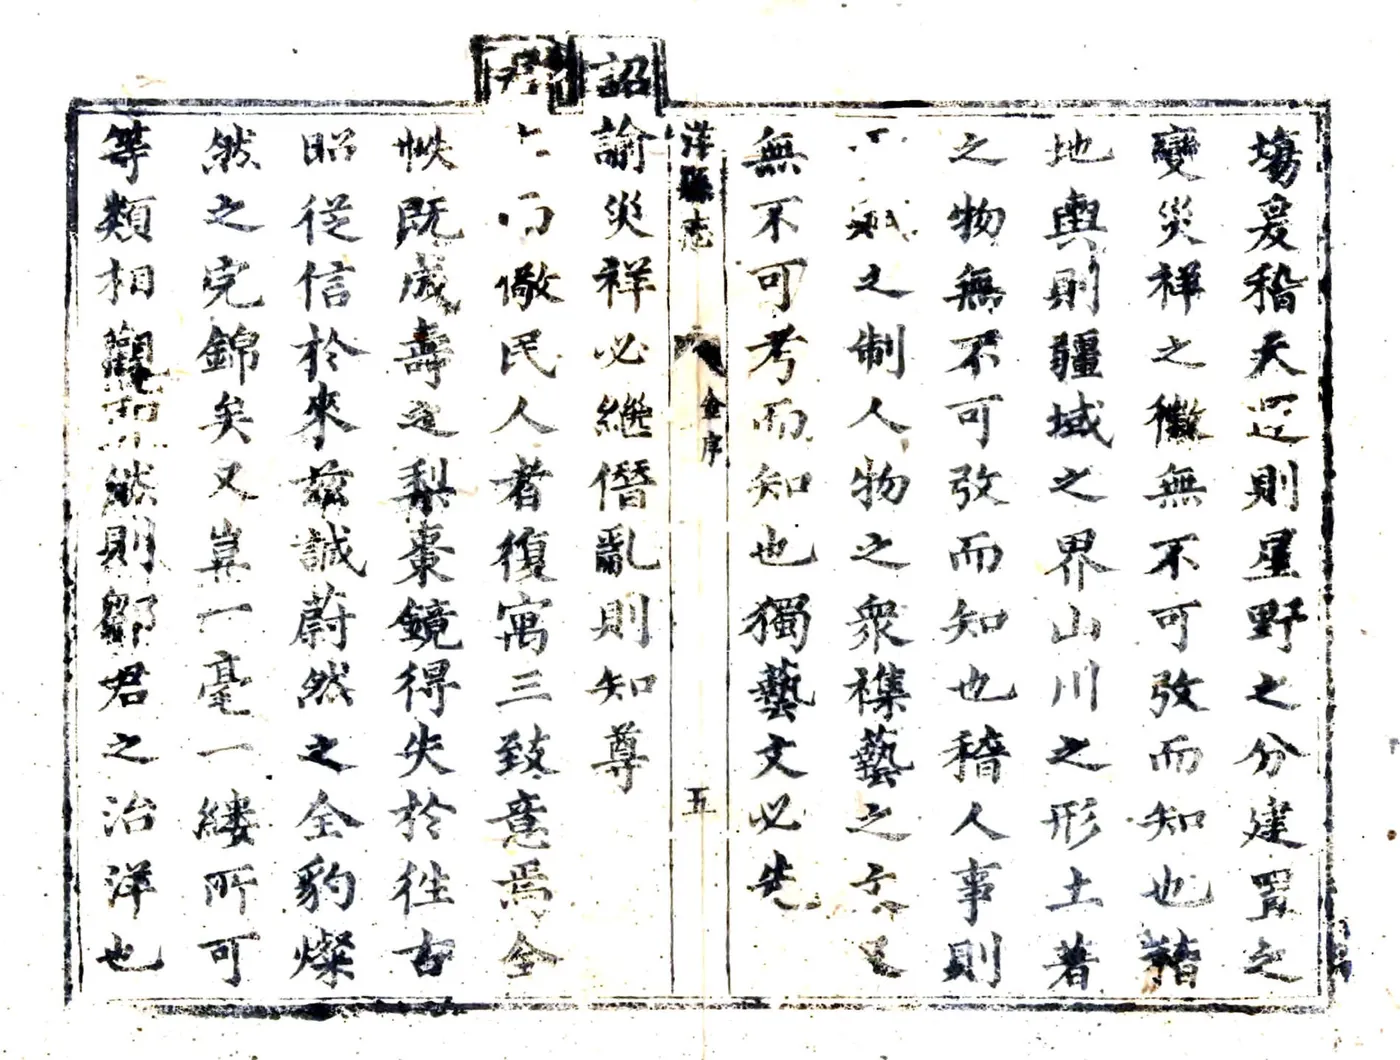 塲爰稽天運則星野之分建置之
變災祥之徵無不可攷而知也稽
地輿則疆域之界山川之形土著
之物無不可攷而知也稽人事則
之制人物之衆襍藝之
無不可考而知也獨藝文必先
洋縣志
全序
五
詔
諭災祥必繼僭亂則知尊
君
而儆民人者復寓三致意焉全
帙既成壽之梨棗鏡得失於徃古
昭從信於來兹誠蔚然之全豹燦
然之完錦矣又豈一毫一縷所可
等類相觀然則鄒君之治洋也